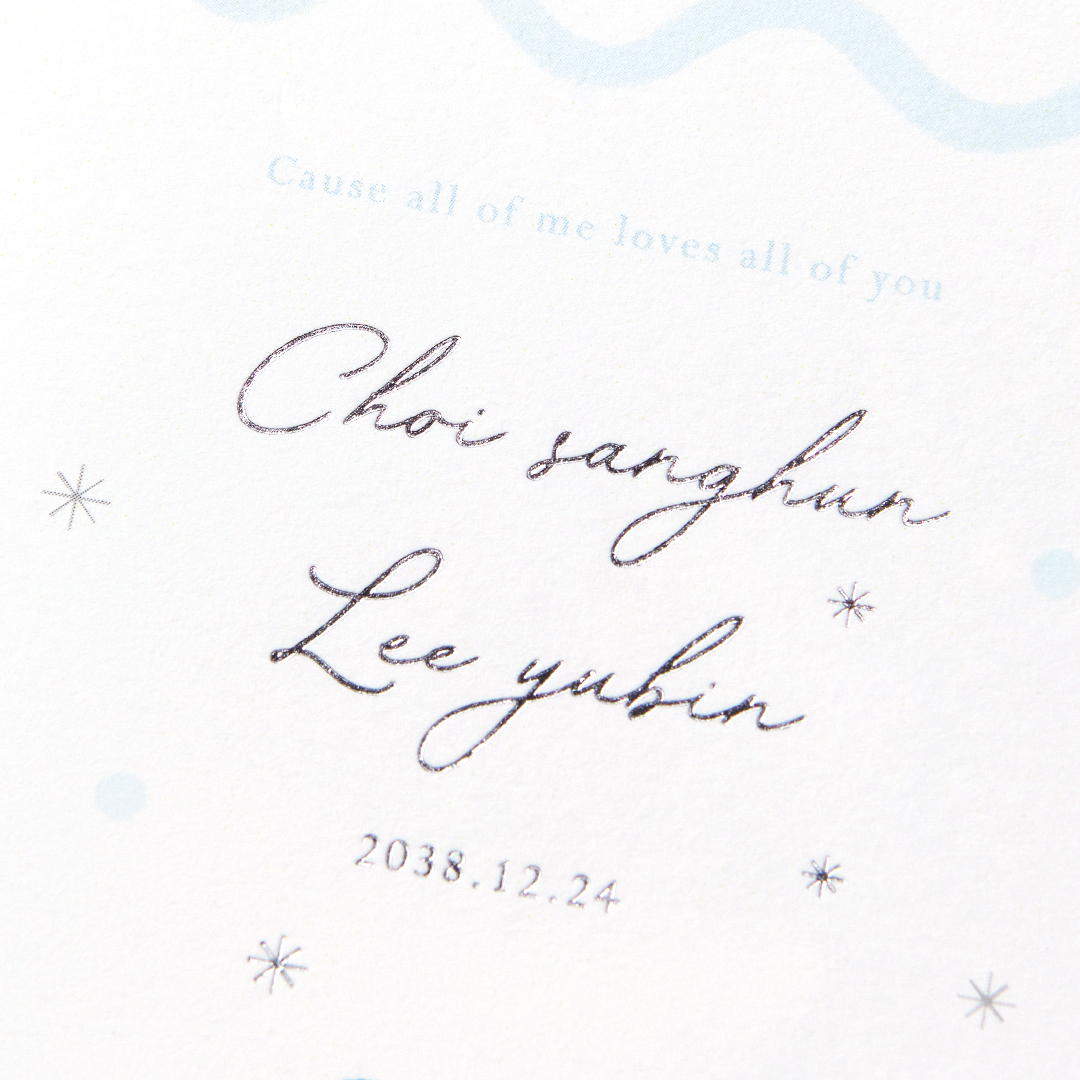 Cause all of me loves all of you
Choi sanghun
Lee yubin
2038.12.24